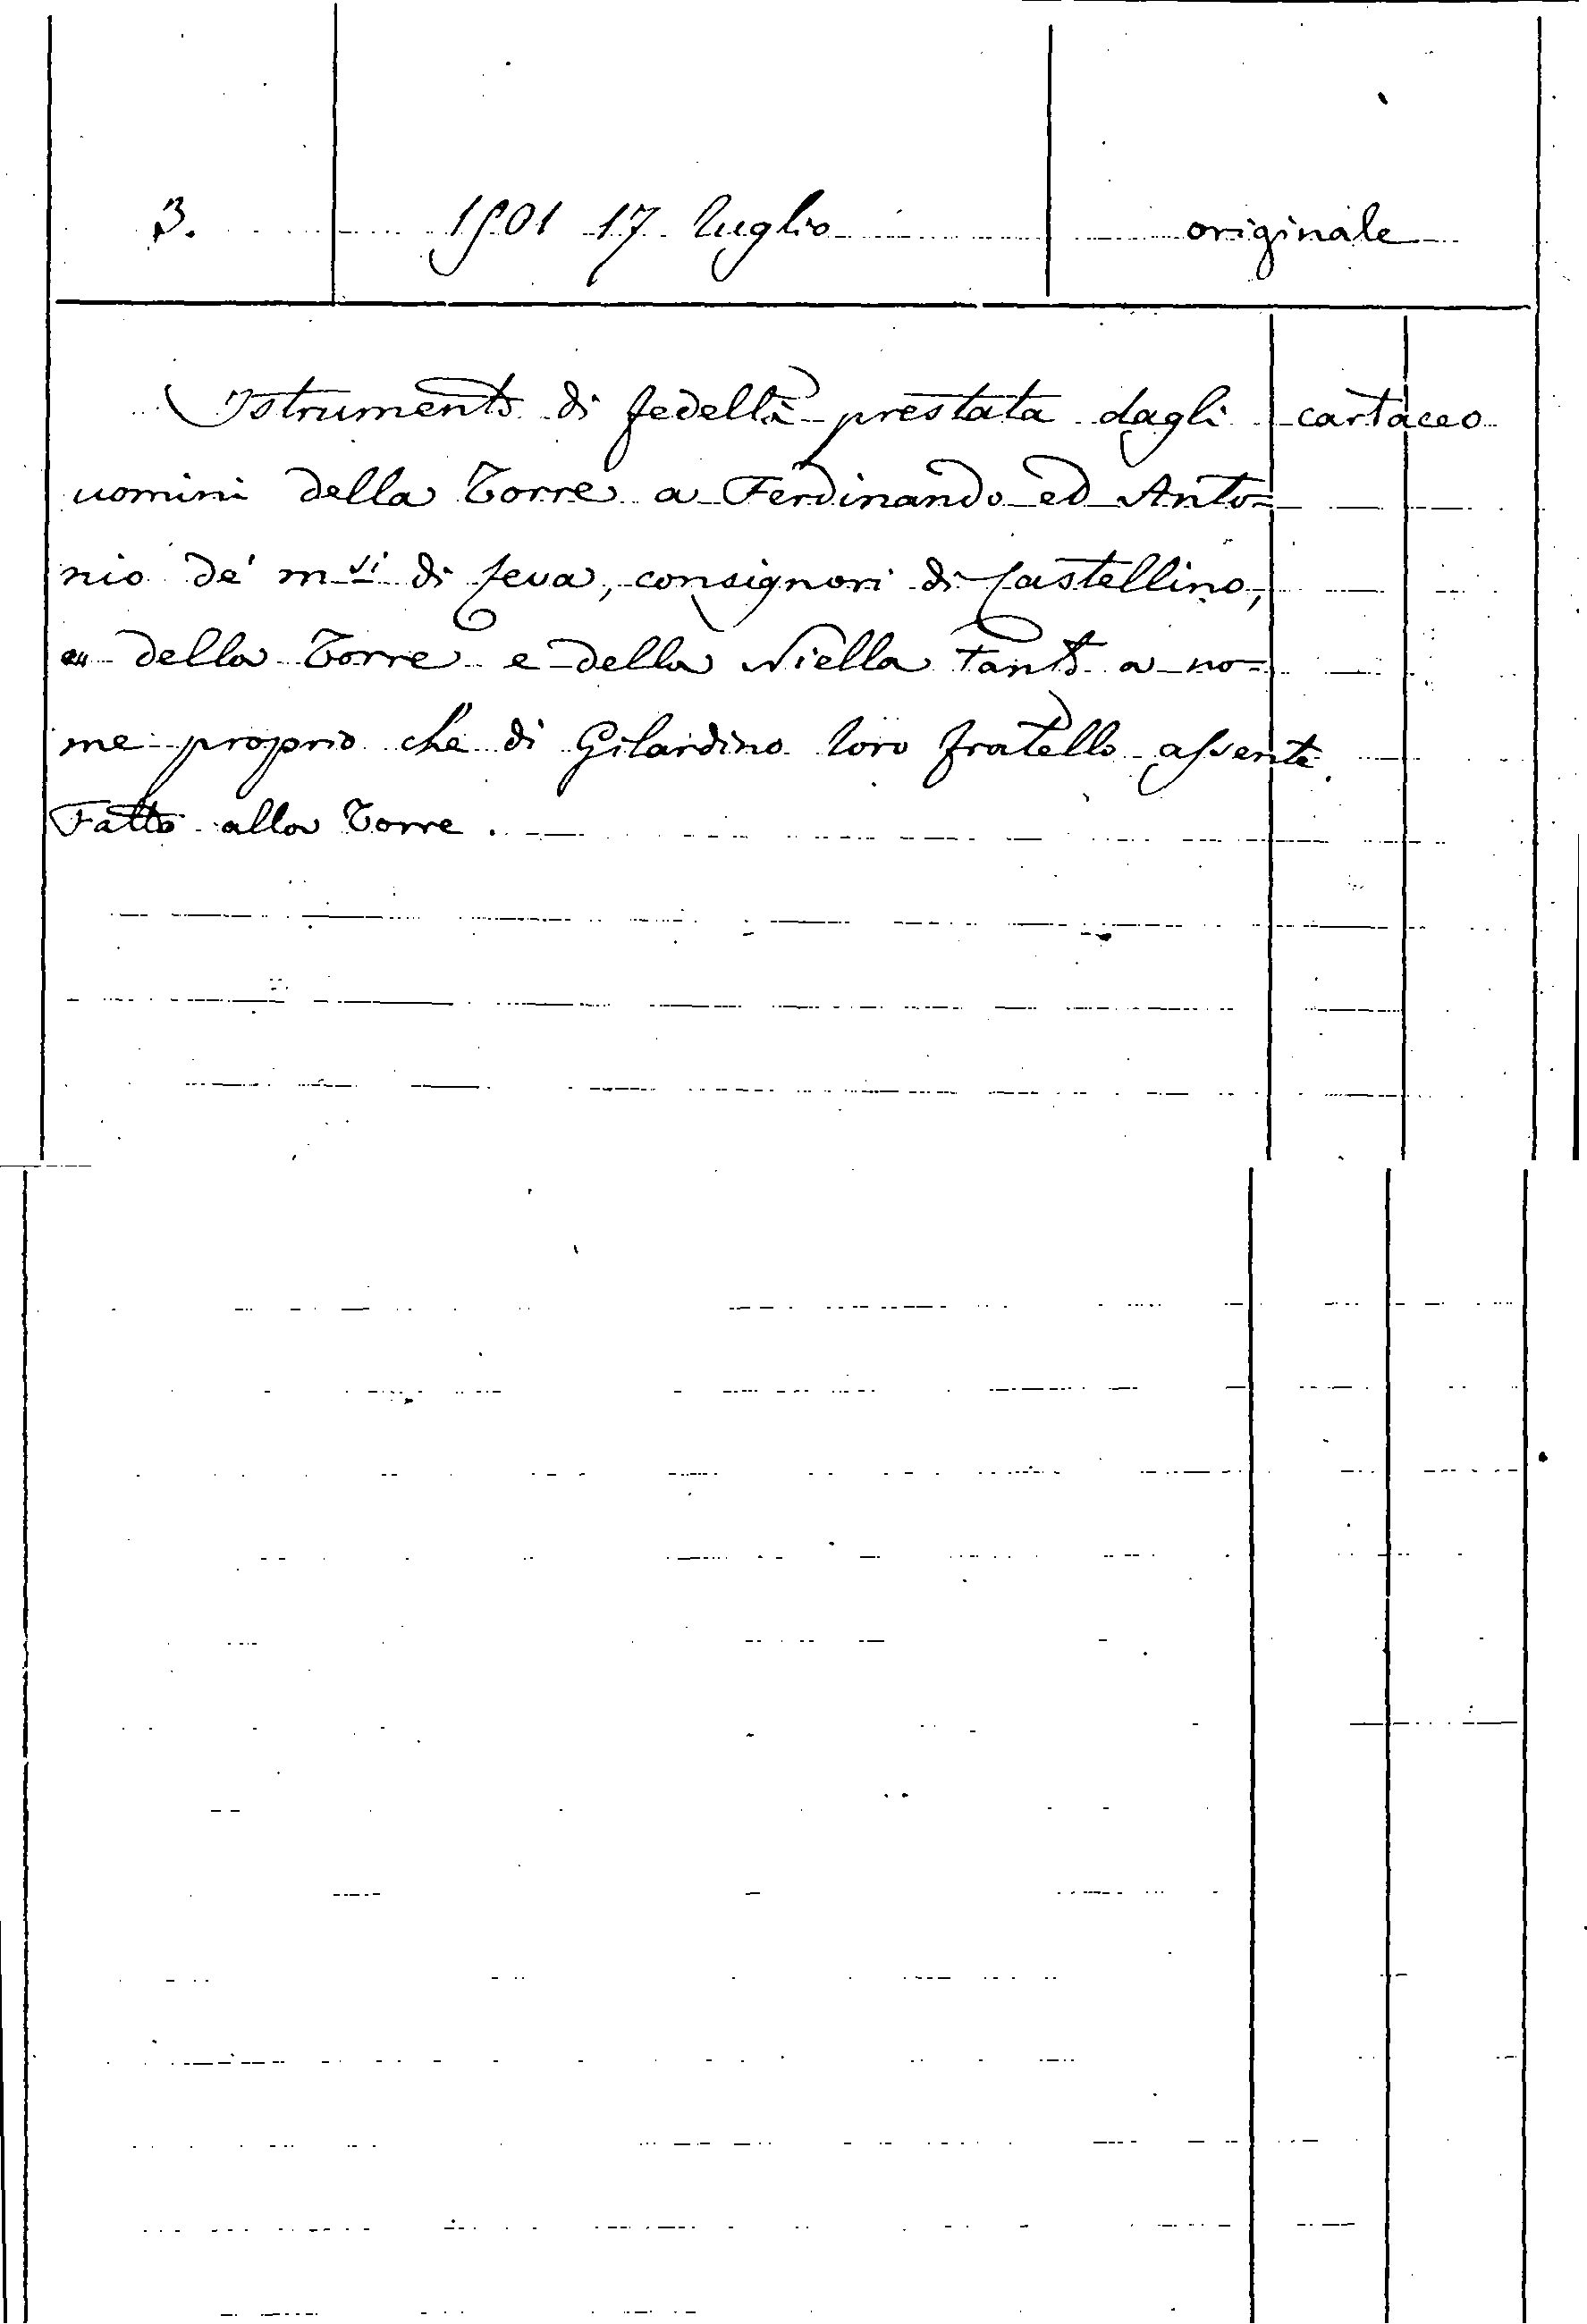 3. 1501 17 luglio originale
Istrumento di fedeltà prestata dagli cartaceo
uomini della Torre a Ferdinando ed Anto=
nio de' m.si di Ceva, consignori di Castellino,
della Torre e della Niella tanto a no=
me proprio che di Gilardino loro fratello assente.
Fatto alla Torre.